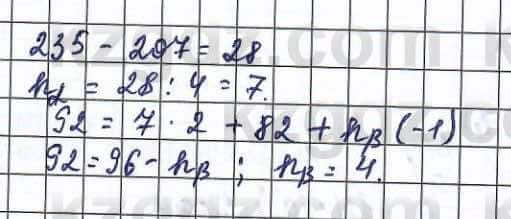 235 - 207 = 28
n_α = 28 : 4 = 7.
92 = 7 · 2 + 82 + n_β (-1)
92 = 96 - n_β ; n_β = 4.